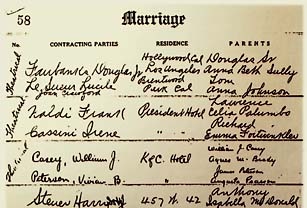 58 Marriage
No. CONTRACTING PARTIES RESIDENCE PARENTS
Hollywood Cal Douglas Sr
Fairbanks Douglas Jr Los Angeles Anna Beth Sully
Le Sueur Lucile Brentwood Tom
Joan Crawford Park Cal Anna Johnson
Lawrence
Naldi Frank President Hotel Celia Palumbo
Richard
Cassini Irene " " Emma
William J. Casey
Casey, William J. K of C. Hotel Agnes M. Brady
James
Peterson, Vivian B. "
Anthony
Harri 457 W. 42 Isabella McDonald